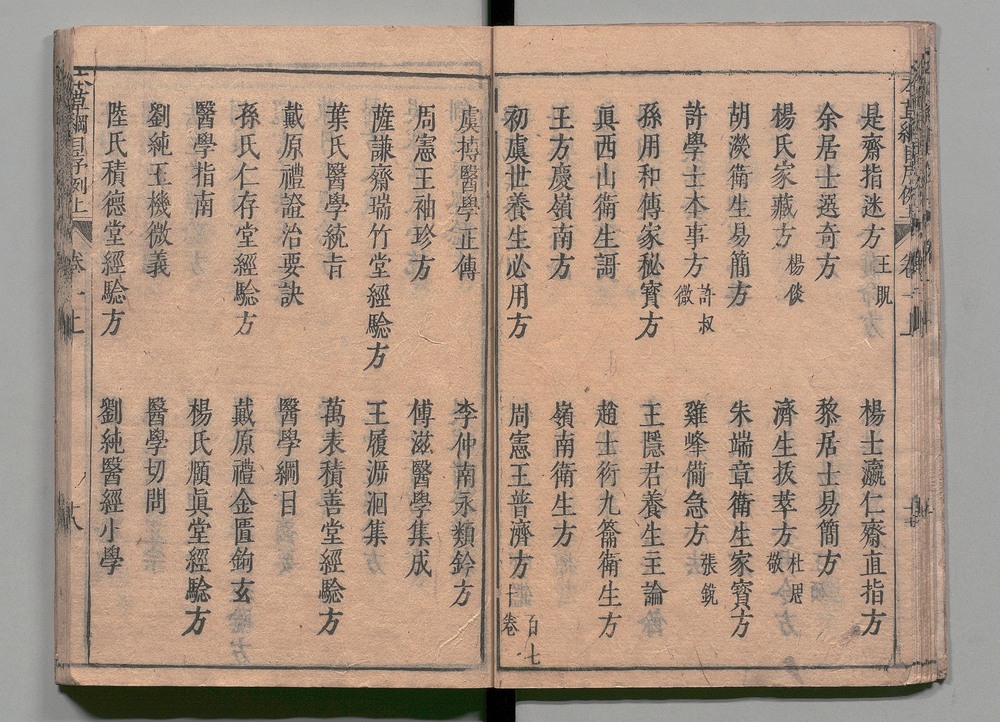 是齋指迷方 王貺
楊士瀛仁齋直指方
余居士選奇方
黎居士易簡方
楊氏家藏方 楊倓
濟生拔萃方 杜思敬
胡濙衛生易簡方
朱端章衛生家寶方
許學士本事方 許叔微
雞峰備急方 張銳
孫用和傳家秘寶方
王隱君養生主論
眞西山衛生謌
趙士衍九籥衛生方
王方慶嶺南方
嶺南衛生方
初虞世養生必用方
周憲王普濟方 百七十卷
虞摶醫學正傳
李仲南永類鈐方
周憲王袖珍方
傅滋醫學集成
薩謙齋瑞竹堂經驗方
王履溯洄集
葉氏醫學統旨
萬表積善堂經驗方
戴原禮證治要訣
醫學綱目
孫氏仁存堂經驗方
戴原禮金匱鉤玄
醫學指南
楊氏願眞堂經驗方
劉純玉機微義
醫學切問
陸氏積德堂經驗方
劉純醫經小學
本草綱目序例上 卷一上 十八